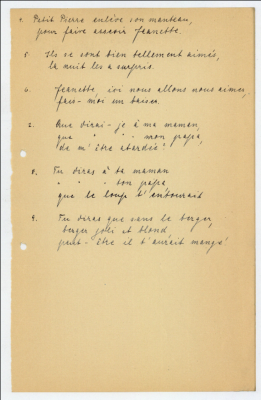 4. Petit Pierre enlève son manteau,
pour faire asseoir Jeannette.
5. Ils se sont bien tellement aimés,
la nuit les a surpris.
6. Jeannette, ici nous allons nous aimer,
fais-moi un baiser.
7. Que dirai-je à ma maman,
que " " " mon papa,
de m'être attardée?
8. Tu diras à ta maman
" " " ton papa,
que le loup t'entourait
9. Tu diras que sans le berger,
berger joli et blond,
peut-être il t'aurait mangé!